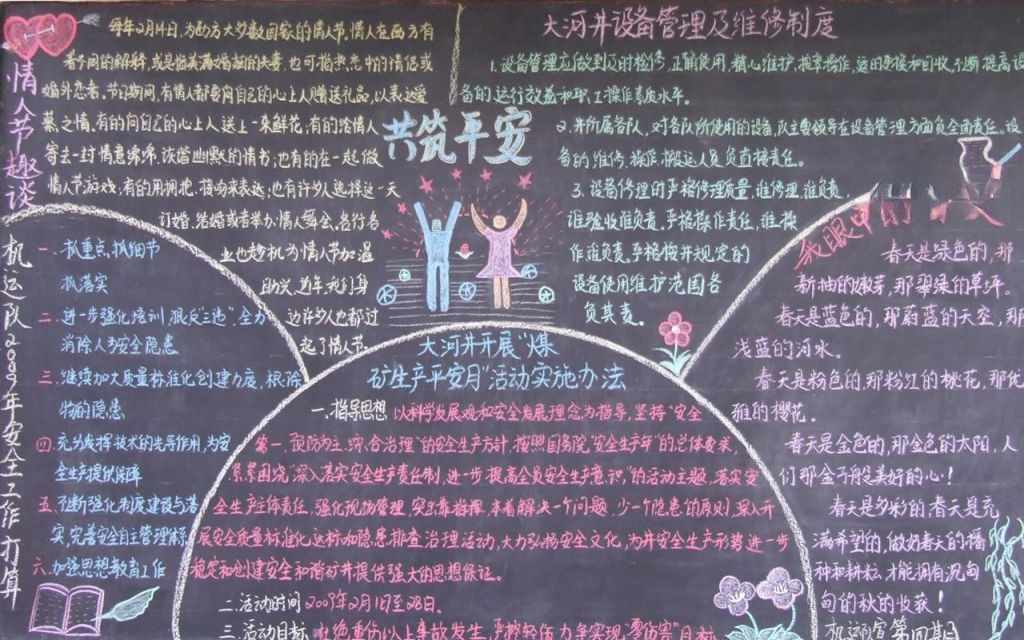 情人节趣谈
每年2月14日,为西方大多数国家的情人节,情人在西方有
着不同的解释,或是指美满婚姻的夫妻,也可指热恋中的情侣或
婚外恋者。节日期间,有情人都要向自己的心上人赠送礼品,以表达爱
慕之情。有的向自己的心上人送上一束鲜花;有的给情人
寄去一封情意绵绵,诙谐幽默的情书;也有的在一起做
情人节游戏;有的用拥抱、接吻来表达;也有许多人选择这一天
订婚、结婚或者举办情人舞会,各行各
业也趁机为情人节加温
助兴,近年,我们身
边许多人也都过
起了情人节。
大河井设备管理及维修制度
1.设备管理应做到及时检修,正确使用,精心维护,按章操作,适时更换和回收,不断提高设
备的运行效益和职工操作素质水平。
2.井所属各队,对各队所使用的设备,队主要领导在设备管理方面负全面责任。设
备的维修、操作、搬运人员负直接责任。
3.设备修理时严格修理质量,谁修理,谁负责,
谁验收谁负责,严格操作责任,谁操
作谁负责,严格按井规定的
设备使用维护范围各
负其责。
共筑平安
机运队2009年安全工作打算
一、抓重点,抓细节
抓落实
二、进一步强化培训,狠反三违”,全力
消除人为安全隐患
三、继续加大质量标准化创建力度,根除
物的隐患
四、充分发挥技术的先导作用,为安
全生产提供保障
五、不断强化制度建设与落
实,完善安全自主管理体系
六、加强思想教育工作
大河井开展“煤
矿生产平安月”活动实施办法
一、指导思想 以科学发展观和安全发展理念为指导,坚持“安全
第一、预防为主、综合治理”的安全生产方针,按照国务院“安全生产年”的总体要求,
紧紧围绕“深入落实安全生产责任制,进一步提高全员安全生产意识”的活动主题,落实安
全生产主体责任,强化现场管理,突出靠前指挥,本着解决一个问题,少一个隐患的原则,深入开
展安全质量标准化达标和隐患排查治理活动,大力弘扬安全文化,为井安全生产形势进一步
稳定和创建安全和谐矿井提供强大的思想保证。
二、活动时间 2009年2月1日至28日。
三、活动目标 杜绝重伤以上事故发生,严控轻伤,力争实现“零伤害”目标
我眼中的
春天是绿色的,那
新抽的嫩芽,那翠绿的草坪。
春天是蓝色的,那蔚蓝的天空,那
浅蓝的河水。
春天是粉色的,那粉红的桃花,那优
雅的樱花。
春天是金色的,那金色的太阳,人
们那金子般美好的心!
春天是多彩的,春天是充
满希望的,做好春天的播
种和耕耘,才能拥有沉甸
甸的秋的收获!
机运队宣 第四期